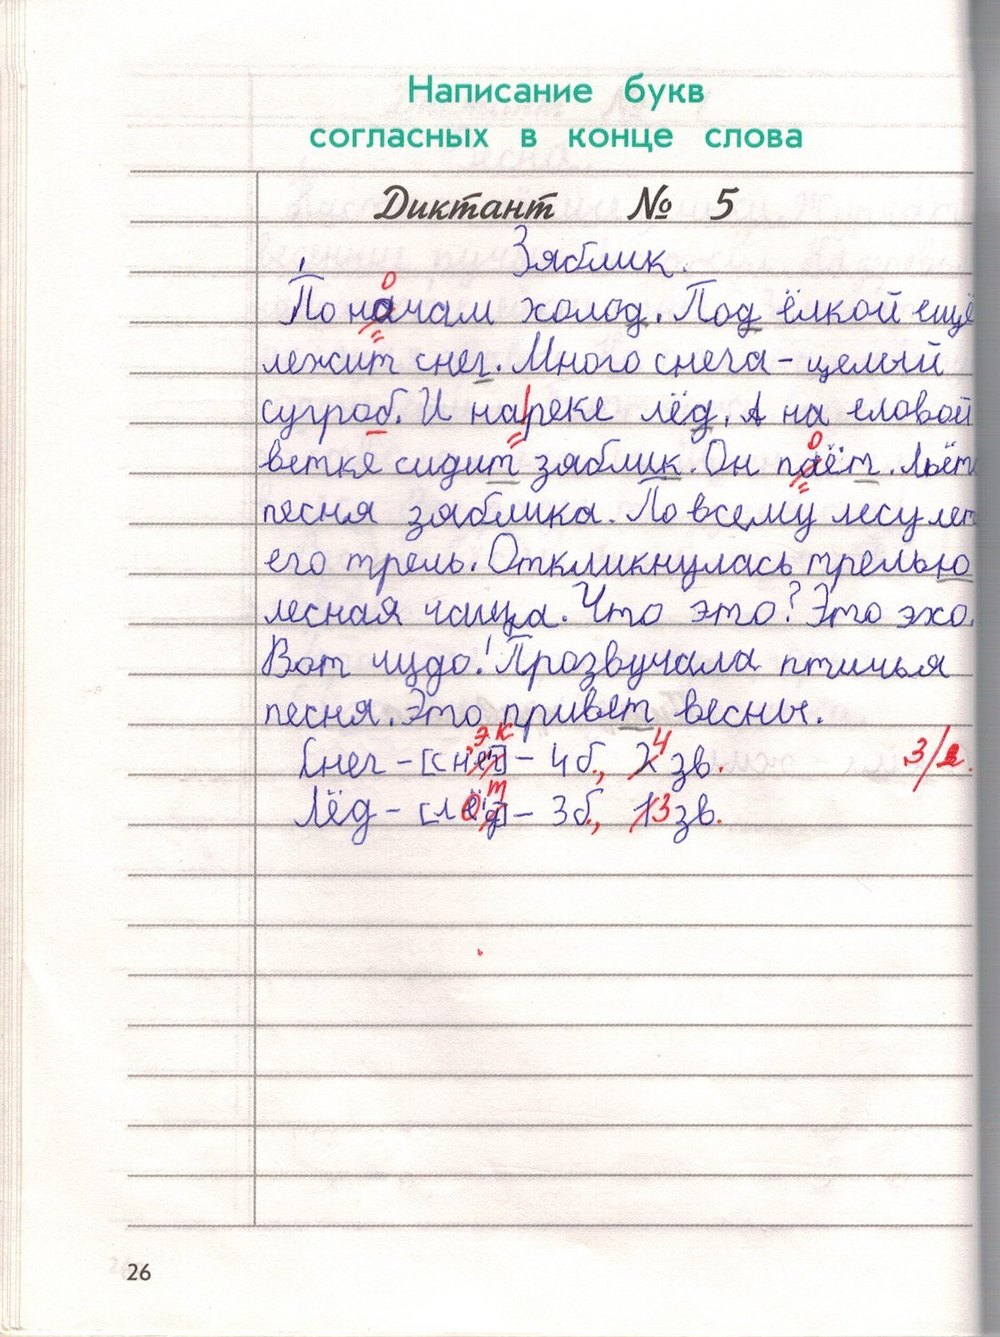 Написание букв
согласных в конце слова
Диктант № 5
Зяблик.
По начам холод. Под ёлкой ещё
лежит снег. Много снега - целый
сугроб. И на реке лёд. А на еловой
ветке сидит зяблик. Он паёт. Льёт
песня зяблика. По всему лесу лет
его трель. Откликнулась трелью
лесная чаща. Что это? Это эхо.
Вот чудо! Прозвучала птичья
песня. Это привет весны.
Снег - [снег] - 4 б., 4 зв. 3/2.
Лёд - [лёд] - 3 б., 3 зв.
26